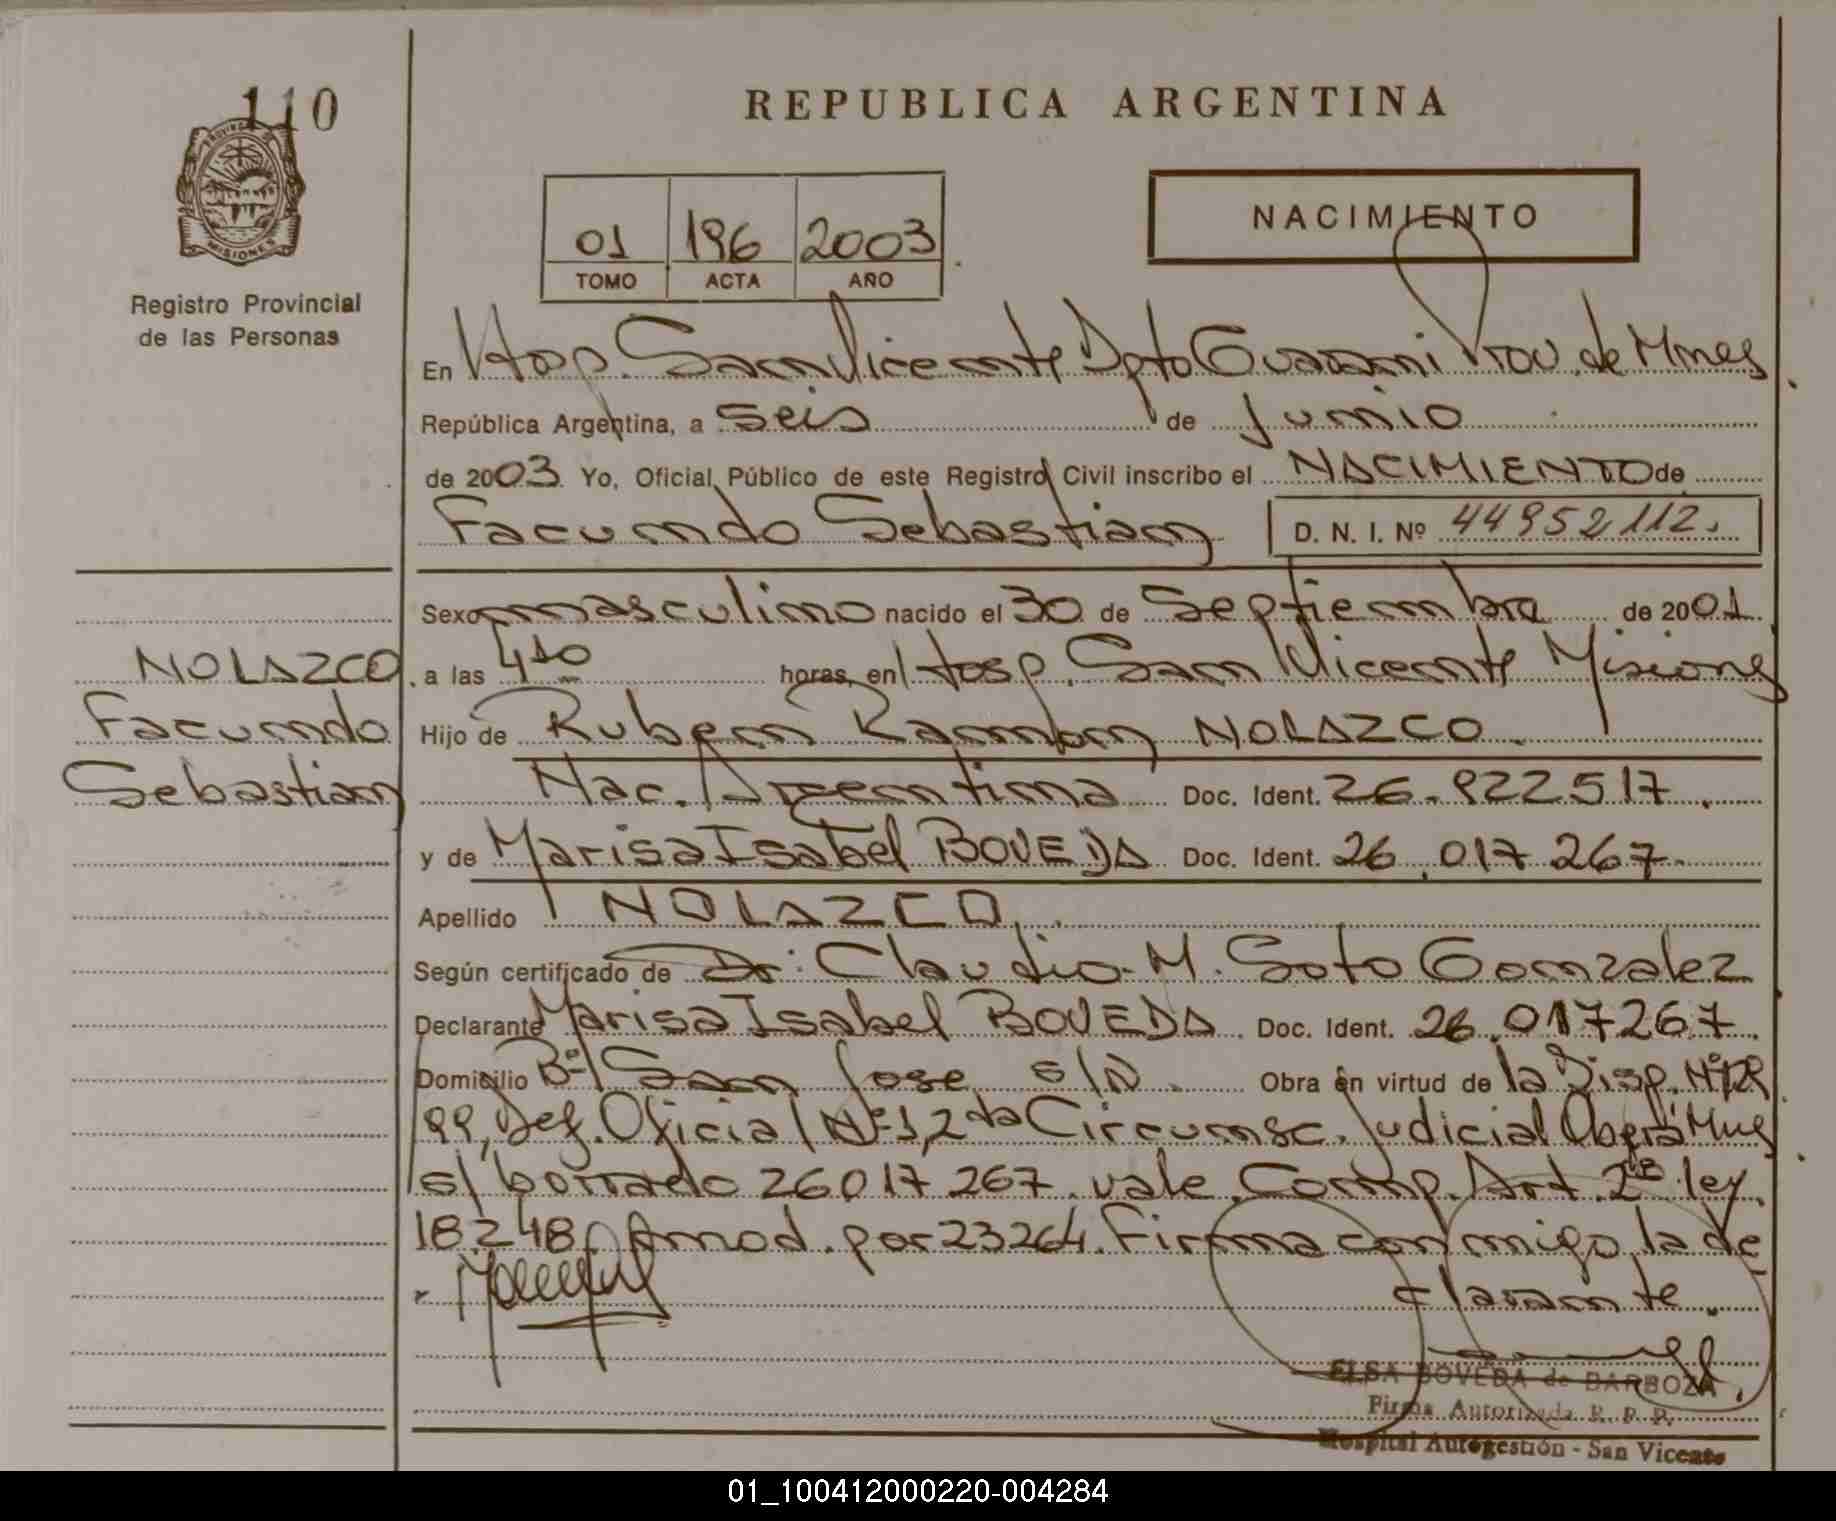 110
REPUBLICA ARGENTINA
PROVINCIA DE
MISIONES
Registro Provincial
de las Personas
01 196 2003
TOMO ACTA AÑO
NACIMIENTO
En Hosp. San Vicente Dpto Guarani Prov. de Mnes
República Argentina, a seis de Junio
de 2003 Yo, Oficial Público de este Registro Civil inscribo el NACIMIENTO de
Facundo Sebastian D. N. I. Nº 44952112.
Sexo masculino nacido el 30 de Septiembre de 2001
NOLAZCO
Facundo
Sebastian
a las 4 10 horas, en Hosp. San Vicente Misiones
Hijo de Ruben Ramon NOLAZCO.
Nac. Argentina Doc. Ident. 26.922517.
y de Marisa Isabel BOVEDA Doc. Ident. 26.017267.
Apellido NOLAZCO.
Según certificado de Dr. Claudio M. Soto Gonzalez
Declarante Marisa Isabel BOVEDA Doc. Ident. 26.017267.
Domicilio Bº San Jose s/N. Obra en virtud de la Disp. Nº
99, Def. Oficial Nº 1, 2da Circunsc. Judicial Oberá Mnes
s/ borrado 26017267. vale. Comp. Art. 2º ley.
18248 mod. por 23264. Firma conmigo la de
clarante.
ELSA BOVEDA de BARBOZA
Firma Autorizada R. P. P.
Hospital Autogestión - San Vicente
01_100412000220-004284